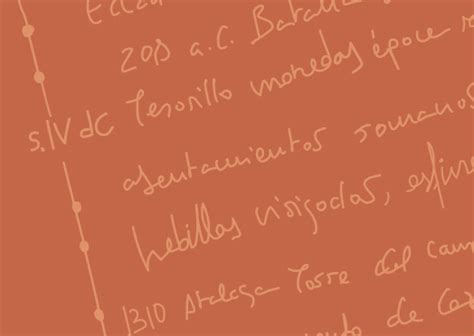 208 a.C. Batalla
S.IV dC Tesorillo monedas época
asentamientos romanos
hebillas visigodas,
1310 Atalaya Torre del cam
de